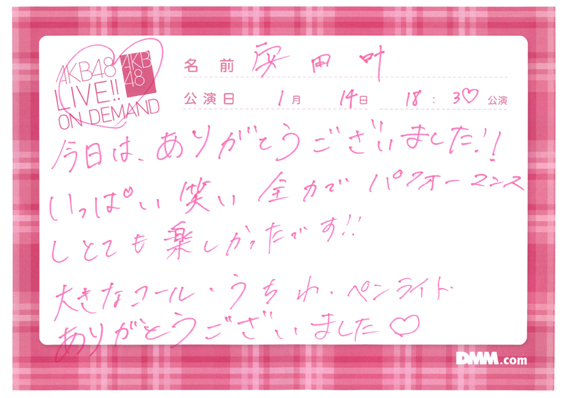 AKB48
LIVE!!
ON DEMAND
AKB
48
名前 安田叶
公演日 1月 14日 18:30 公演
今日は、ありがとうございました!!
いっぱい笑い全力でパフォーマンス
しとても楽しかったです!!
大きなコール・うちわ・ペンライト
ありがとうございました♡
DMM.com